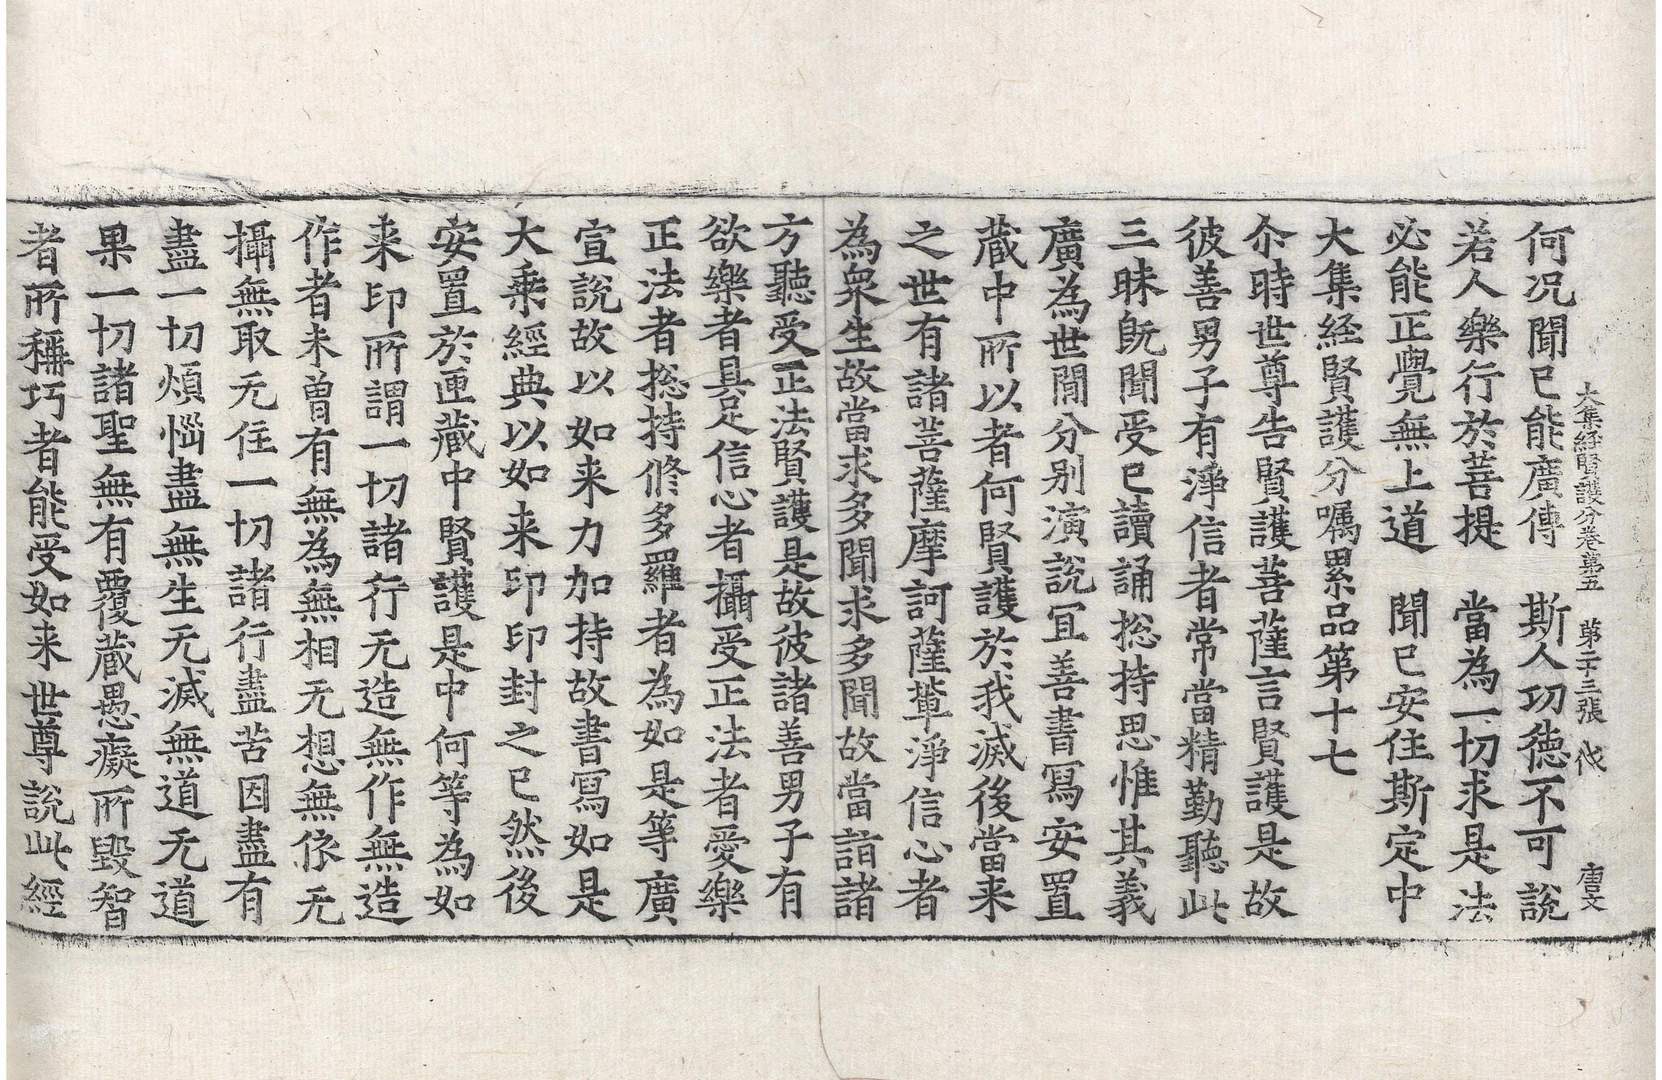 大集経賢護分卷第五　第二十三張　伐　唐文
何况聞已能廣傳　斯人功徳不可說
若人樂行於菩提　當為一切求是法
必能正覺無上道　聞已安住斯定中
大集経賢護分嘱累品第十七
尒時世尊告賢護菩薩言賢護是故
彼善男子有淨信者常當精勤聽此
三昧既聞受已讀誦捴持思惟其義
廣為世間分别演說冝善書寫安置
藏中所以者何賢護於我滅後當来
之世有諸菩薩摩訶薩軰淨信心者
為衆生故當求多聞求多聞故當詣諸
方聽受正法賢護是故彼諸善男子有
欲樂者具足信心者攝受正法者愛樂
正法者捴持修多羅者為如是等廣
宣說故以如来力加持故書寫如是
大乗經典以如来印印封之已然後
安置於匣藏中賢護是中何等為如
来印所謂一切諸行无造無作無造
作者未曽有無為無相无想無依无
攝無取无住一切諸行盡苦因盡有
盡一切煩惱盡無生无滅無道无道
果一切諸聖無有覆藏愚癡所毀智
者所稱巧者能受如来世尊說此經